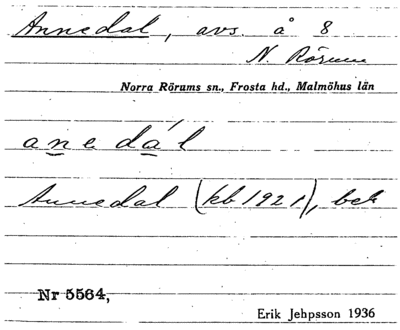 Annedal, avs. å 8
N. Rörum
Norra Rörums sn., Frosta hd., Malmöhus län
anedál
Annedal (kb 1921), beb
Nr 5564,
Erik Jehpsson 1936